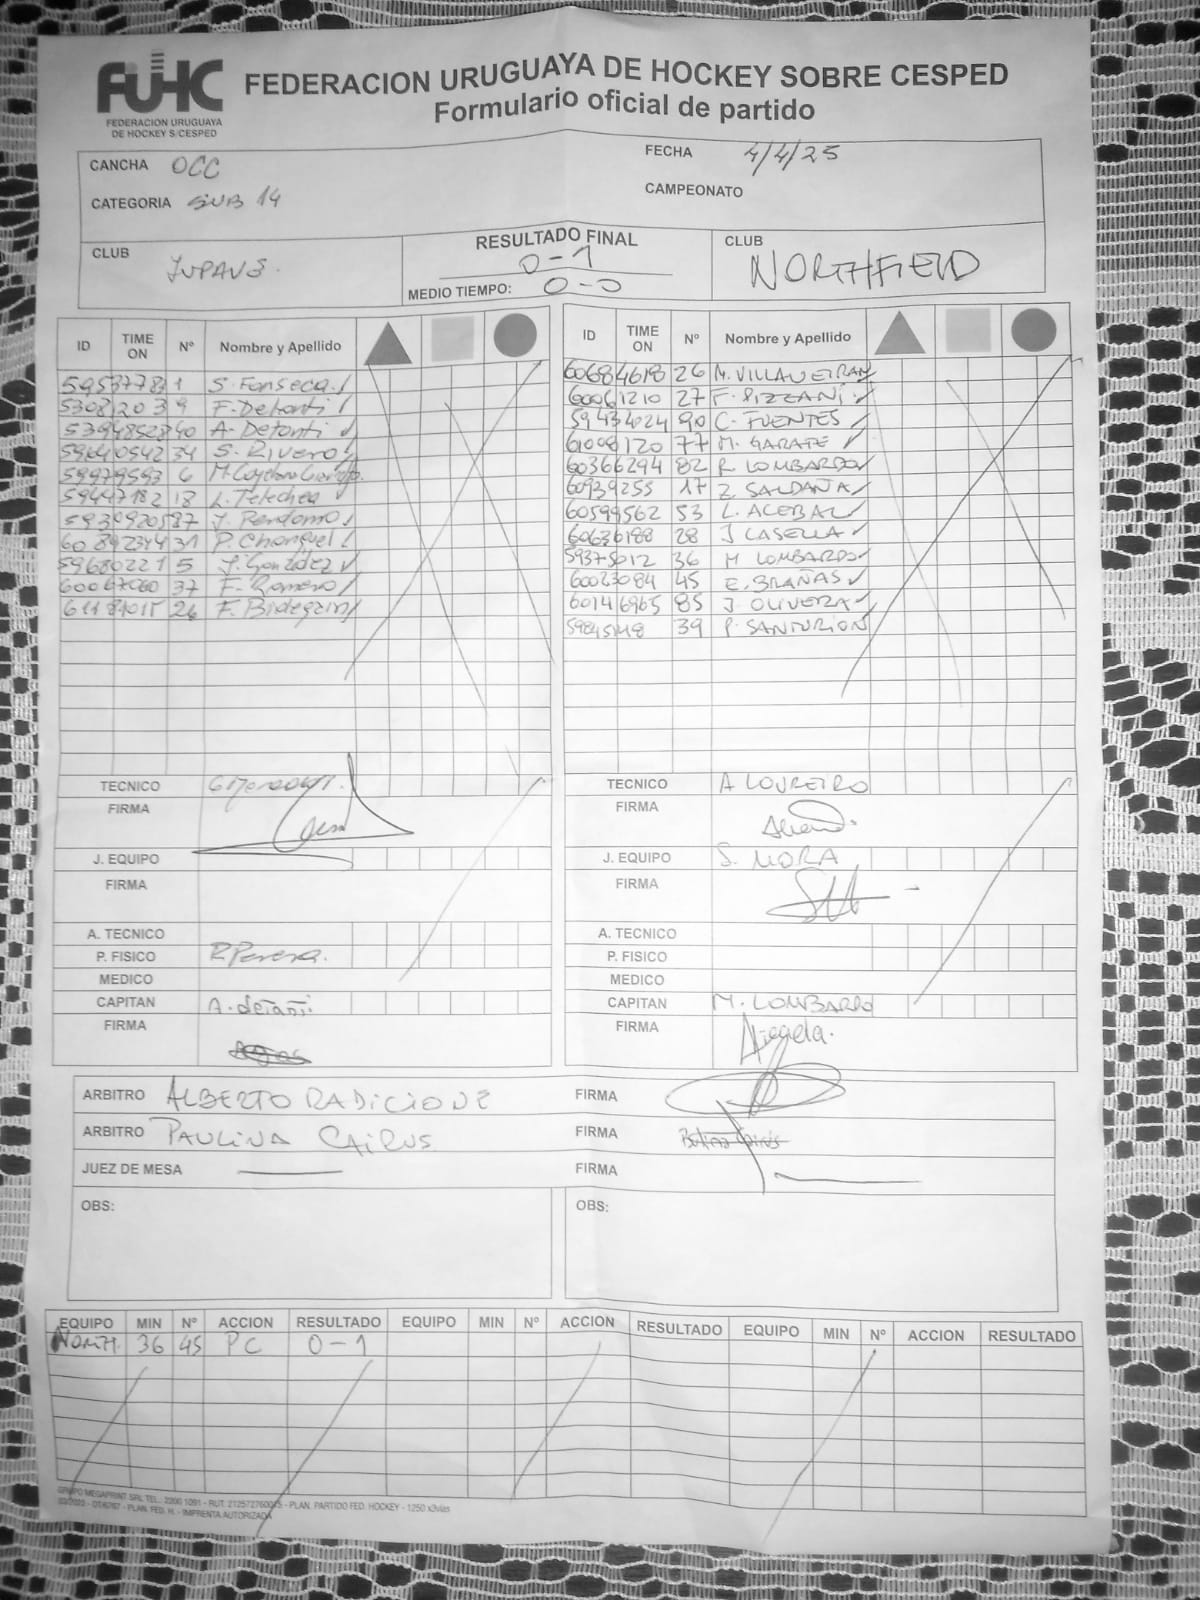 FUHC
FEDERACION URUGUAYA
DE HOCKEY S/CESPED
FEDERACION URUGUAYA DE HOCKEY SOBRE CESPED
Formulario oficial de partido
CANCHA OCC
FECHA 4/4/25
CATEGORIA SUB 14
CAMPEONATO
CLUB
RESULTADO FINAL
0-1
MEDIO TIEMPO: 0-0
CLUB
NORTHFIELD
ID TIME ON Nº Nombre y Apellido
1 S. Fonseca
9 F. Detonti
40 A. Detonti
34 S. Rivero
59979593 6
59447182 18 L. Telechea
87 J. Perdomo
31 P. Chonquel
59680221 5 J. González
60067060 37 F. Romero
26 F. Bidegain
ID TIME ON Nº Nombre y Apellido
60684618 26 M. VILLAVEIRAN
60061210 27 F. PIZZANI
59434024 90 C. FUENTES
61008120 77 M. GARATE
60366294 82 R. LOMBARDO
60939255 17 Z. SALDAÑA
60599562 53 L. ACEBAL
60636188 28 J CASELLA
59375012 36 M LOMBARDO
60023084 45 E. BRAÑAS
60146965 85 J. OLIVERA
39 P. SANTURION
TECNICO
FIRMA
J. EQUIPO
FIRMA
A. TECNICO
P. FISICO
MEDICO
CAPITAN
FIRMA
TECNICO A LOUREIRO
FIRMA
J. EQUIPO S. MORA
FIRMA
A. TECNICO
P. FISICO
MEDICO
CAPITAN M. LOMBARDO
FIRMA
ARBITRO ALBERTO RADICIONE FIRMA
ARBITRO PAULINA CAIRUS FIRMA
JUEZ DE MESA FIRMA
OBS: OBS:
EQUIPO MIN Nº ACCION RESULTADO EQUIPO MIN Nº ACCION RESULTADO EQUIPO MIN Nº ACCION RESULTADO
NORTH. 36 45 PC 0-1
GRUPO MEGAPRINT SRL TEL.: 2200 1091 - RUT. - PLAN. PARTIDO FED. HOCKEY - 1250 x3vias
- PLAN. FED. H. - IMPRENTA AUTORIZADA